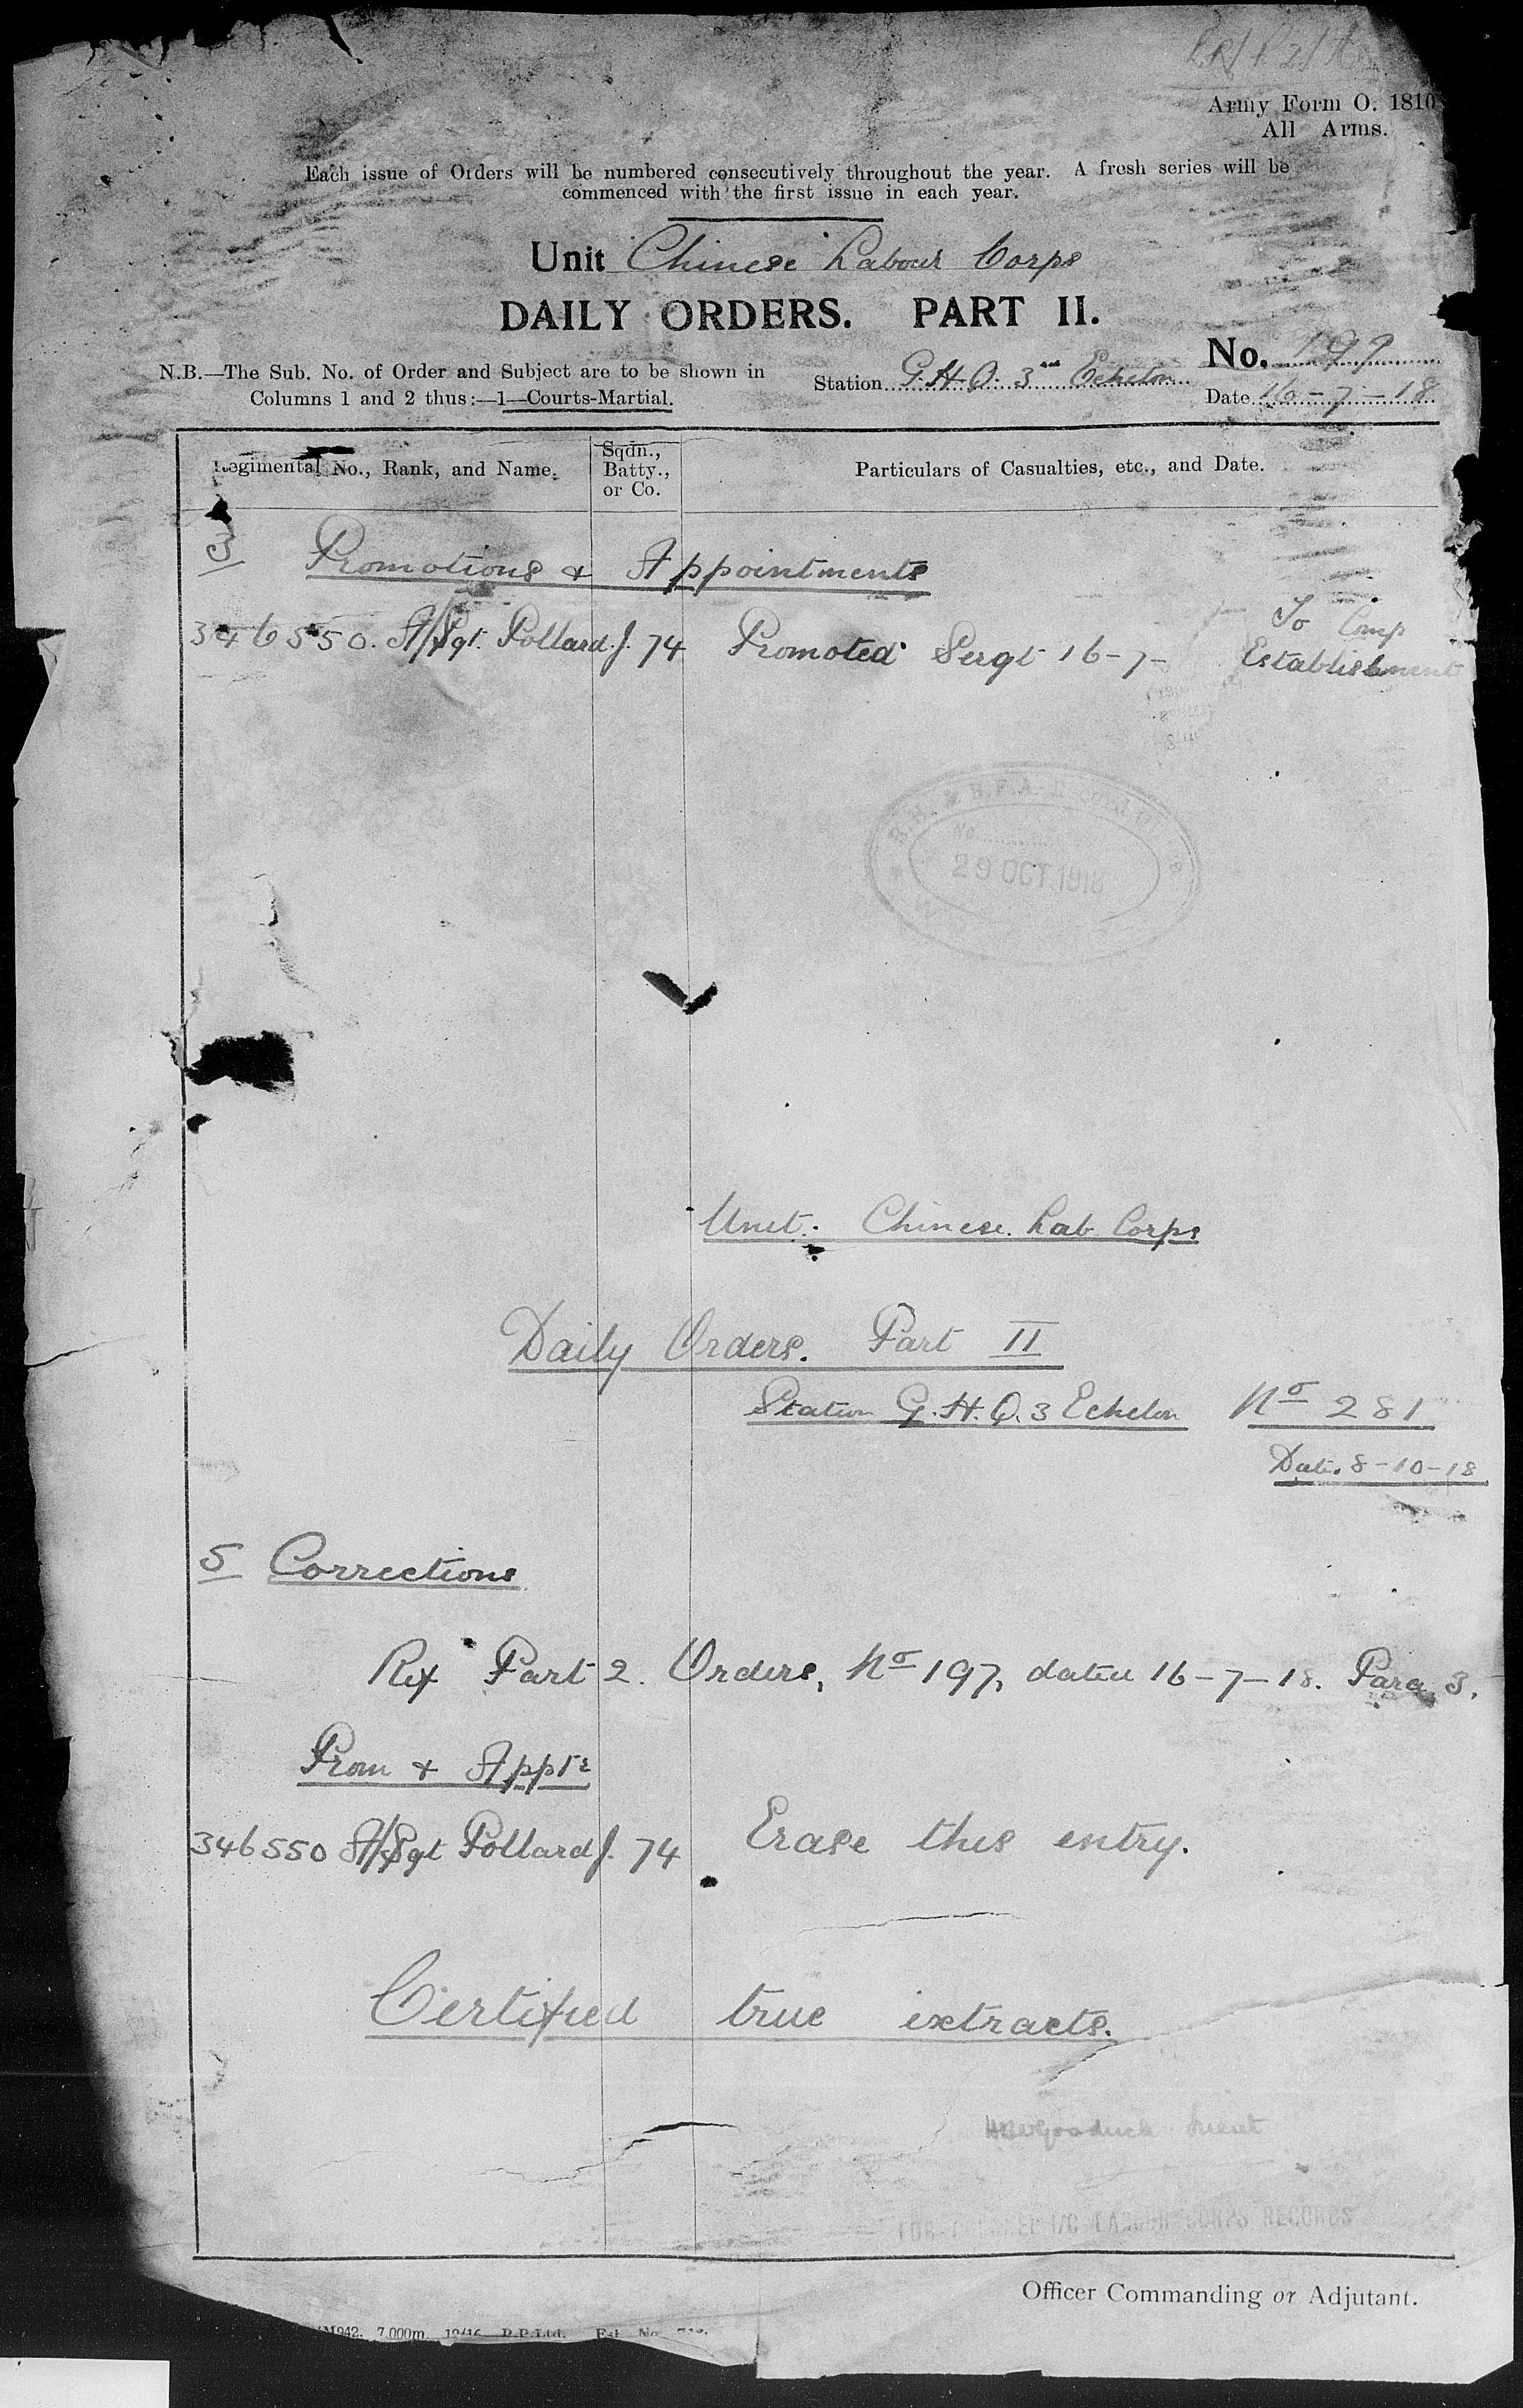 Army Form O. 1810
All Arms.
Each issue of Orders will be numbered consecutively throughout the year. A fresh series will be
commenced with the first issue in each year.
Unit Chinese Labour Corps
DAILY ORDERS. PART II.
No. 197
N.B.—The Sub. No. of Order and Subject are to be shown in
Columns 1 and 2 thus:—1—Courts-Martial.
Station G.H.Q. 3rd Echelon
Date 16-7-18
Regimental No., Rank, and Name.
Sqdn.,
Batty.,
or Co.
Particulars of Casualties, etc., and Date.
3 Promotions & Appointments
346550. A/Sgt. Pollard. J. 74 Promoted Sergt 16-7- To Comp
Establishment
29 OCT 1918
Unit. Chinese. Lab Corps
Daily Orders. Part II
Station G.H.Q. 3 Echelon No 281
Date. 8-10-18
5 Corrections
Ref Part 2. Orders, No 197, dated 16-7-18. Para 3.
Prom & Appts
346550 A/Sgt Pollard J. 74 Erase this entry.
Certified true extracts.
I/C LABOUR CORPS RECORDS
Officer Commanding or Adjutant.
7,000m.